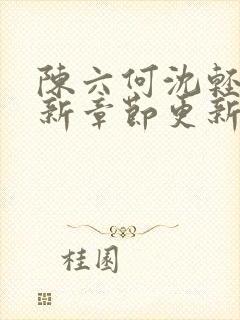 陳六何沈輕
新章節更新
桂園